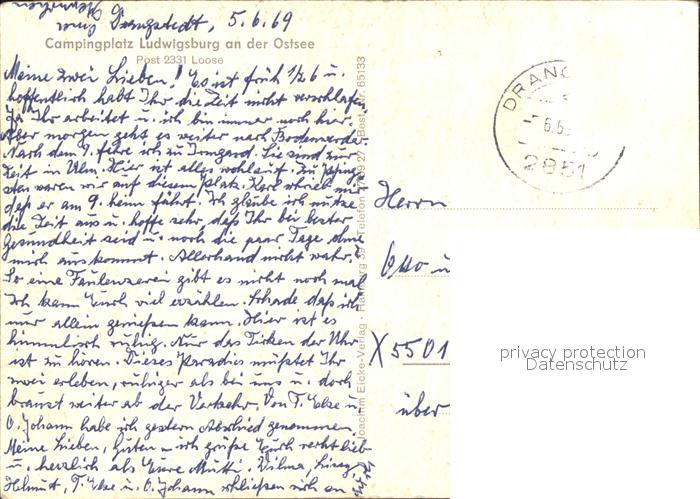 Drangstedt, 5.6.69
Campingplatz Ludwigsburg an der Ostsee
Post 2331 Loose
Meine zwei Lieben! Es ist früh 1/2 6 u.
hoffentlich habt Ihr die Zeit nicht verschlafen.
Ja Ihr arbeitet u. ich bin immer noch hier.
Aber morgen geht es weiter nach
Nach dem 9. fahre ich zu Irmgard. Sie sind zur
Zeit in Ulm. Hier ist alles wohlauf. Zu
waren wir auf diesem Platz. Karl schrieb mir
daß er am 9. heim fährt. Ich glaube ich nütze
die Zeit aus u. hoffe sehr, daß Ihr bei bester
Gesundheit seid u. noch die paar Tage ohne
mich auskommt. Allerhand nicht wahr?
So eine Faulenzerei gibt es nicht noch mal
Ich kann Euch viel erzählen. Schade daß ich
nur allein genießen kann. Hier ist es
himmlisch ruhig. Nur das Ticken der Uhr
ist zu hören. Dieses Paradies müßtet Ihr
zwei erleben, ruhiger als bei uns u. doch
braust weiter ab der Verkehr. Von T. Else u.
O. Johann habe ich gestern Abschied genommen.
Meine Lieben, Guten – ich grüße Euch recht lieb
u. herzlich als Eure Mutti. Wilma,
Helmut, T. Else u. O. Johann schließen sich an
Joachim Eicke-Verlag · Hamburg 39 · Telefon 27 · Best.-Nr. 65133
DRANG
6.6
2851
Herrn
Otto u
X 5501
über
privacy protection
Datenschutz